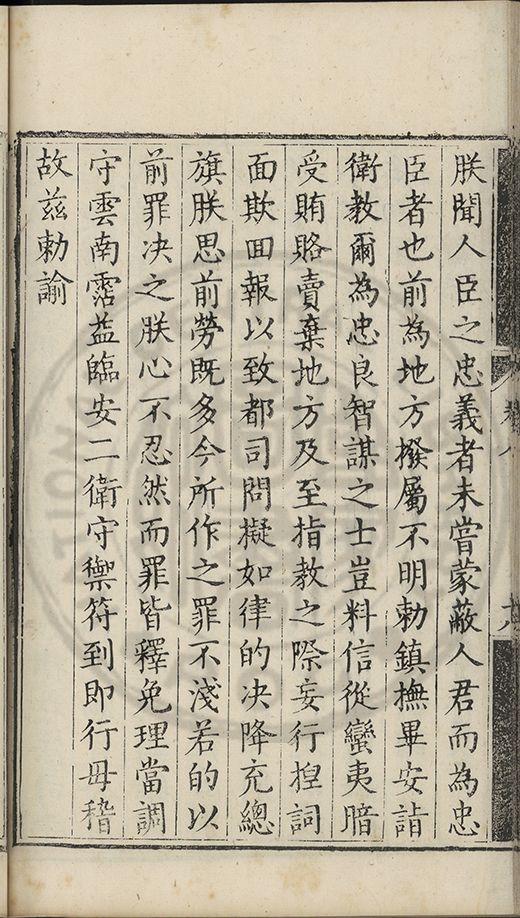 朕聞人臣之忠義者未嘗蒙蔽人君而為忠
臣者也前為地方撥屬不明勅鎮撫畢安詣
衛教爾為忠良智謀之士豈料信從蠻夷暗
受賄賂賣棄地方及至指教之際妄行捏詞
面欺囬報以致都司問擬如律的決降充總
旗朕思前勞既多今所作之罪不淺若的以
前罪決之朕心不忍然而罪皆釋免理當調
守雲南霑益臨安二衛守禦符到即行毋稽
故茲勅諭